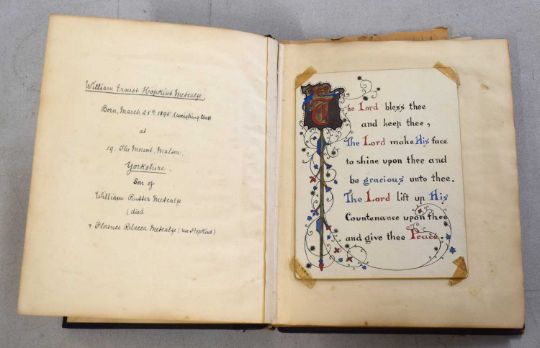 William Ernest Hopkins Metcalfe
Born, March 25th 1895. (
at
19. The Mount, Malton,
Yorkshire.
Son of
William Metcalfe
(died
& Florence Rebecca Metcalfe (née Hopkins)
The Lord bless thee
and keep thee,
The Lord make His face
to shine upon thee and
be gracious unto thee.
The Lord lift up His
Countenance upon thee
and give thee Peace.